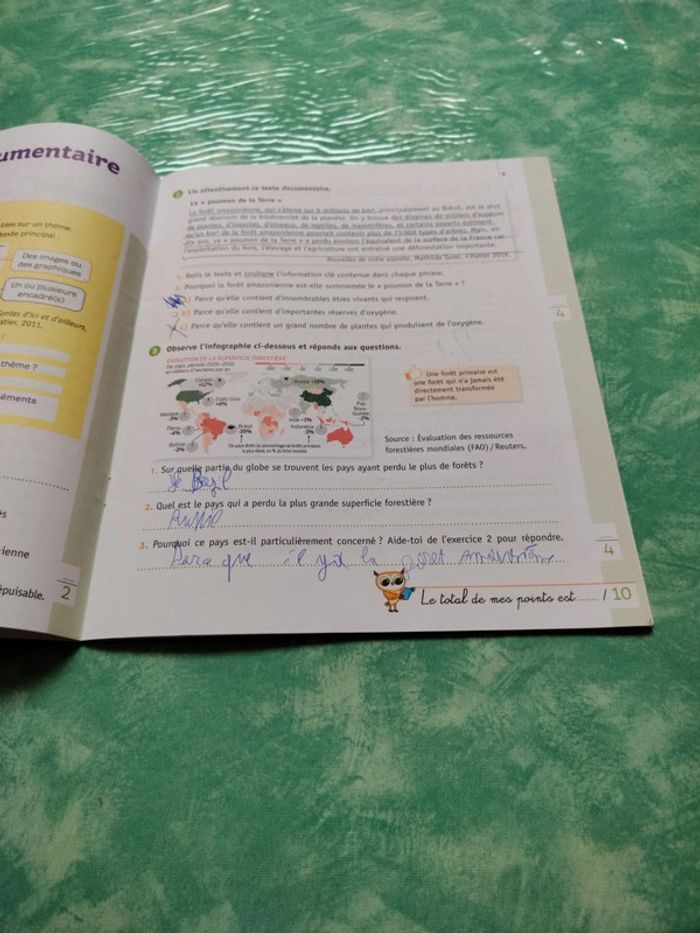 umentaire
sur un thème.
texte principal :
Des images ou
des graphiques
Un ou plusieurs
encadré(s)
Contes d'ici et d'ailleurs,
atier, 2011.
thème ?
éments
ienne
épuisable.
2
2 Lis attentivement ce texte documentaire.
Le « poumon de la Terre »
La forêt amazonienne, qui s'étend sur 6 millions de km², principalement au Brésil, est le plus
grand réservoir de la biodiversité de la planète. On y trouve des dizaines de milliers d'espèces
de plantes, d'insectes, d'oiseaux, de reptiles, de mammifères, et certains experts estiment
qu'un km² de la forêt amazonienne pourrait contenir plus de 75 000 types d'arbres. Mais, en
dix ans, ce « poumon de la Terre » a perdu environ l'équivalent de la surface de la France car
l'exportation du bois, l'élevage et l'agriculture ont entraîné une déforestation importante.
Nouvelles de notre planète, Mathilde Sorel, ©Hatier 2016.
Relis le texte et souligne l'information clé contenue dans chaque phrase.
Pourquoi la forêt amazonienne est-elle surnommée le « poumon de la Terre » ?
a) Parce qu'elle contient d'innombrables êtres vivants qui respirent.
b) Parce qu'elle contient d'importantes réserves d'oxygène.
c) Parce qu'elle contient un grand nombre de plantes qui produisent de l'oxygène.
4
3 Observe l'infographie ci-dessous et réponds aux questions.
ÉVOLUTION DE LA SUPERFICIE FORESTIÈRE
Par pays, période 2000-2010,
en milliers d'hectares par an
Canada
États-Unis
Russie
Mexique
-3%
Pérou
-4%
Bolivie
-3%
Brésil
-35%
Inde
Indonésie
-3%
Pap.
Nouv.-
Guinée
-2%
Une forêt primaire est
une forêt qui n'a jamais été
directement transformée
par l'homme.
Source : Évaluation des ressources
forestières mondiales (FAO) / Reuters.
1. Sur quelle partie du globe se trouvent les pays ayant perdu le plus de forêts ?
2. Quel est le pays qui a perdu la plus grande superficie forestière ?
Russie
3. Pourquoi ce pays est-il particulièrement concerné ? Aide-toi de l'exercice 2 pour répondre.
que il y a la
4
Le total de mes points est ...... / 10